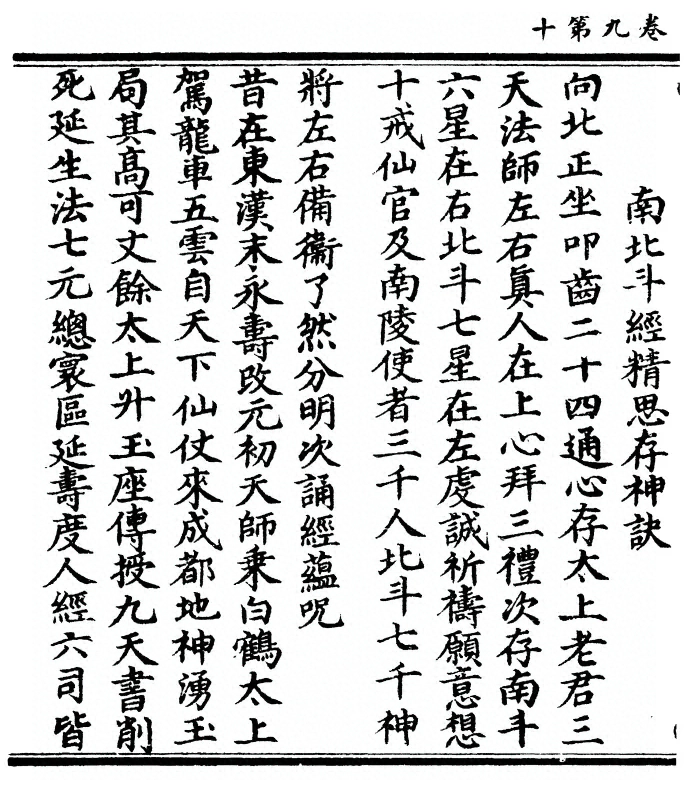 卷九第十
南北斗經精思存神訣
向北正坐叩齒二十四通心存太上老君三
天法師左右真人在上心拜三禮次存南斗
六星在右北斗七星在左虔誠祈禱願意想
十戒仙官及南陵使者三千人北斗七千神
將左右備衞了然分明次誦經蘊呪
昔在東漢末永壽改元初天師乘白鶴太上
駕龍車五雲自天下仙仗來成都地神湧玉
局其高可丈餘太上升玉座傳授九天書削
死延生法七元總寰區延壽度人經六司皆